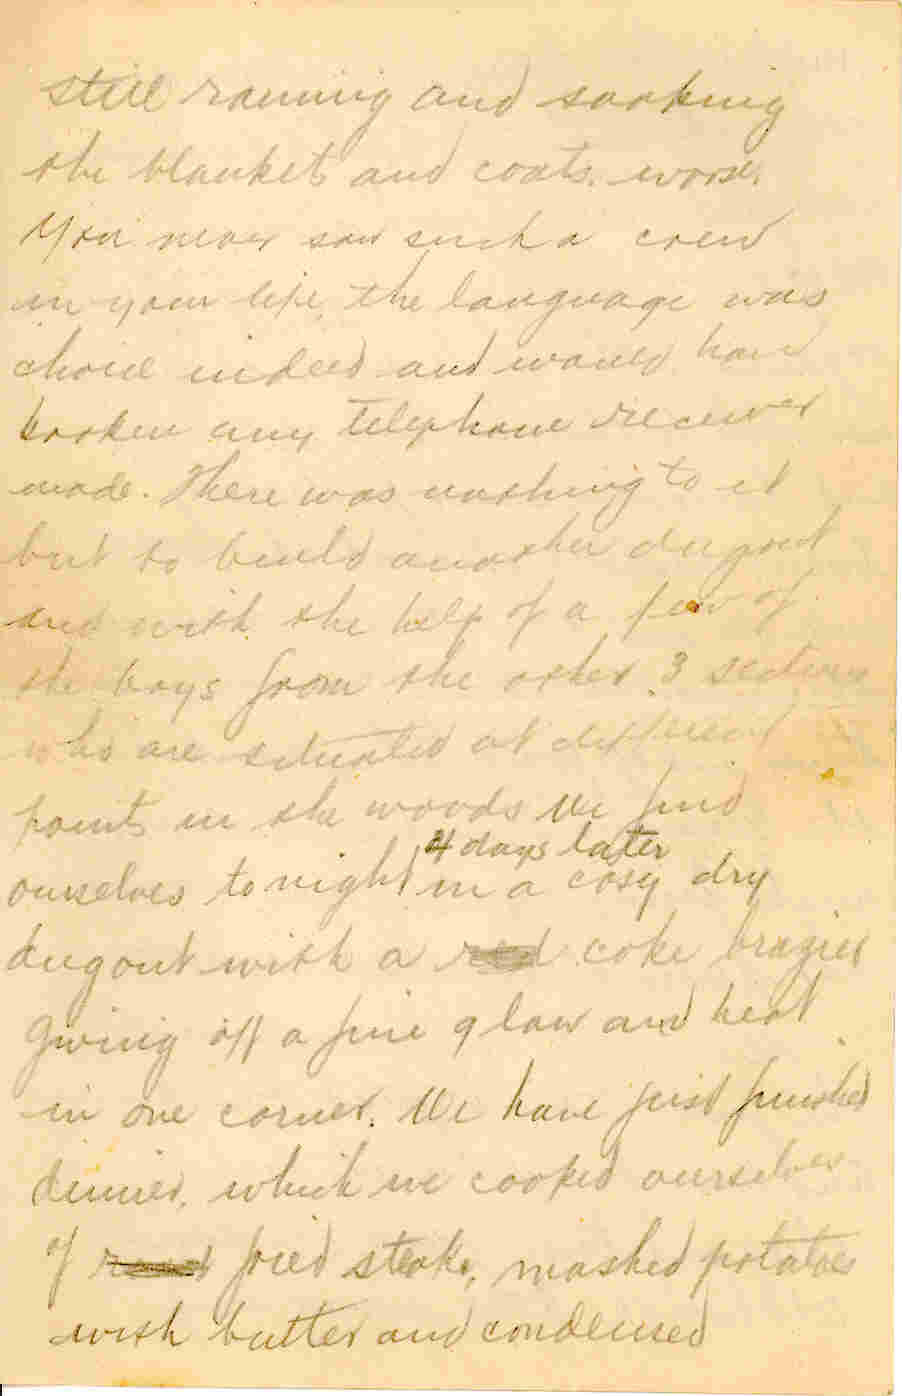 still raining and soaking
the blankets and coats. worse.
You never saw such a crew
in your life, the language was
choice indeed and would have
broken any telephone receiver
made. There was nothing to it
but to build another dugout
and with the help of a few of
the boys from the other 3 sections
who are situated at different
points in the woods we find
4 days later
ourselves to night in a cosy dry
dugout with a coke brazier
giving off a fine glow and heat
in one corner. We have just finished
dinner, which we cooked ourselves
of fried steak, mashed potatoes
with butter and condensed